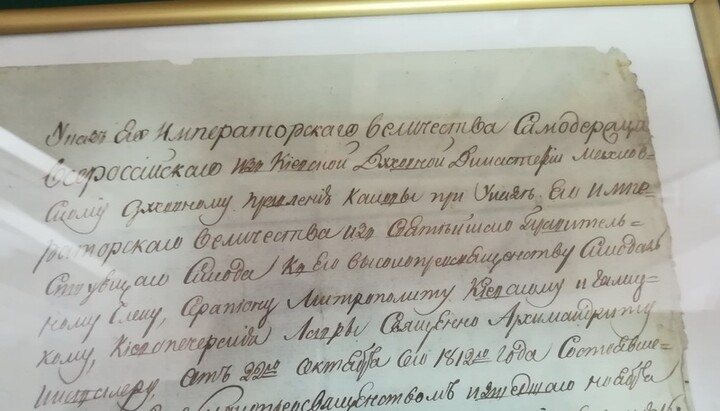 Указъ Его Императорскаго Величества Самодержца
Всероссійскаго изъ Кіевской Духовной Дикастеріи Мехнов-
скому духовному правленію Каковы при Указѣ Его Импе-
раторскаго Величества изъ Святѣйшаго Правитель-
ствующаго Синода Къ Его высокопреосвященству Синодаль
ному Члену, Серапіону Митрополиту Кіевскому и Галиц-
кому, Кіевопечерскія Лавры Священно Архимандриту
отъ 22го октября сего 1812го года Состоявше-
преосвященствомъ ноября